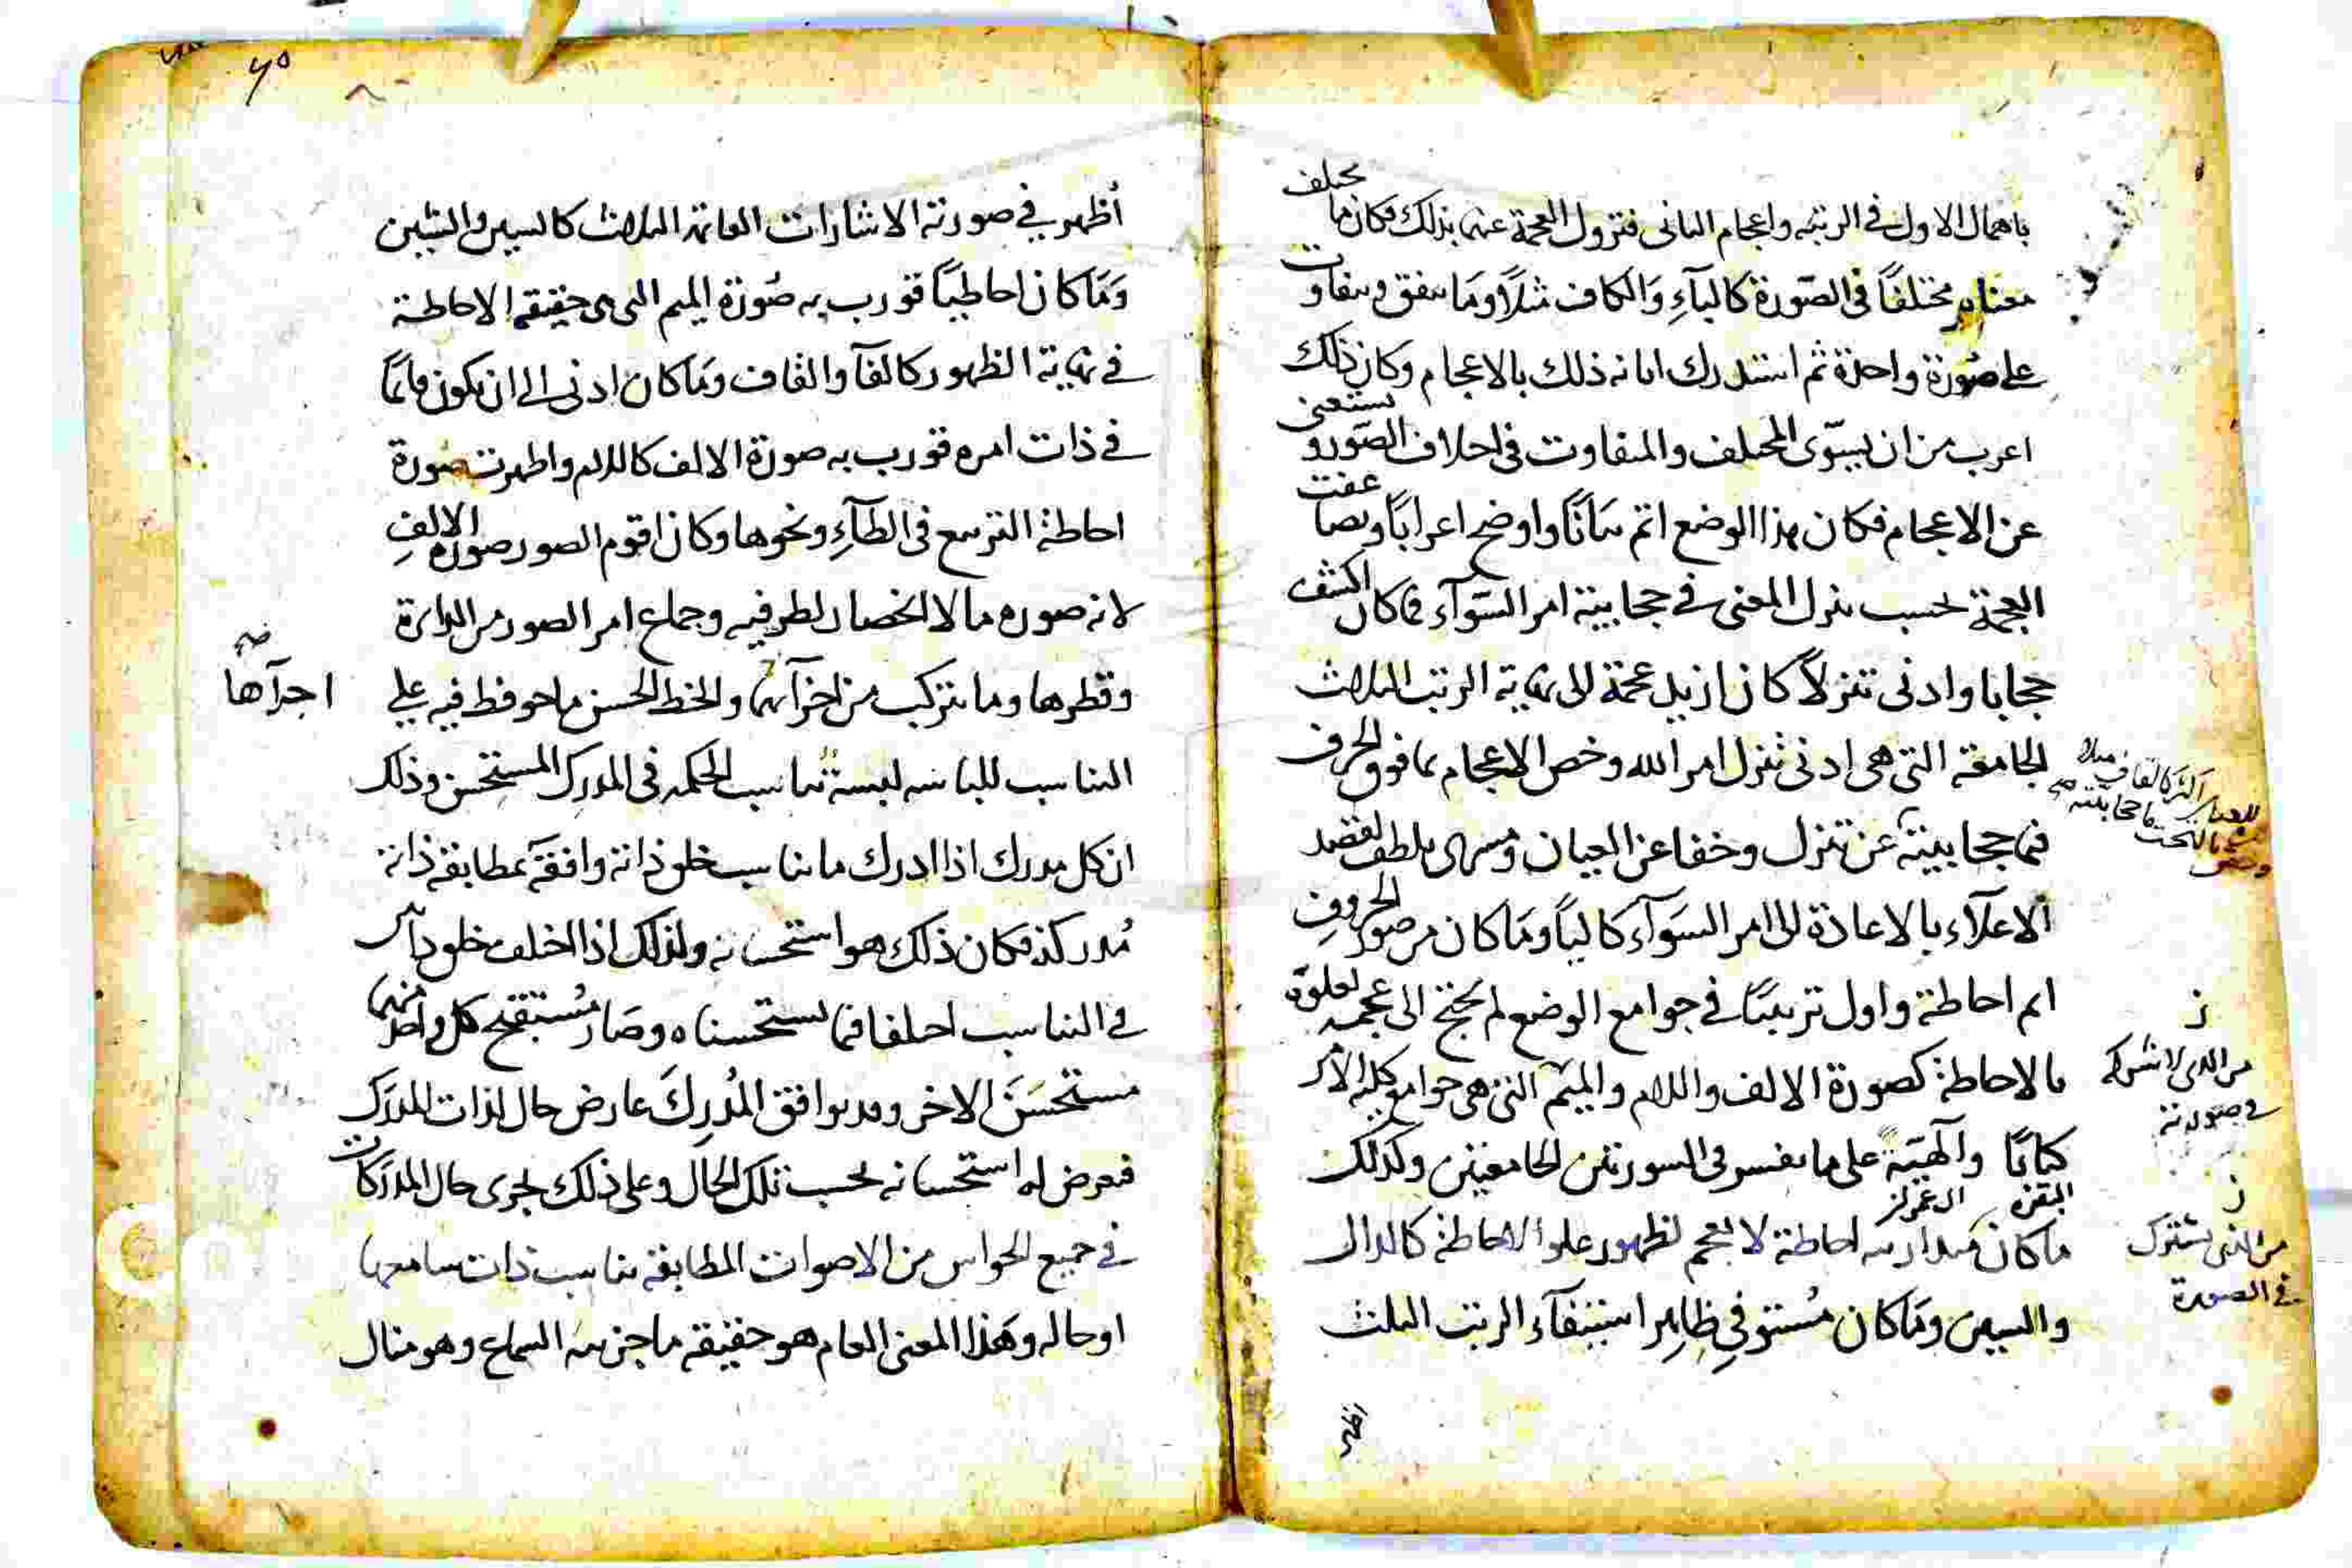 باهمال الاول فى الرتبه واعجام الثانى فتزول العجمة عنهما بذلك فكان ما يختلف
معناه مختلفًا فى الصّورة كالبآءِ وَالكاف مثلًا ومَا يتفق ويتفاوت
على صُورة واحدة ثم استدرك ابانه ذلك بالاعجام وكان ذلك
اعرب من ان يسوّى المختلف والمتفاوت فى اختلاف الصّور ويستغنى
عن الاعجام فكان هذا الوضع اتم بيانًا واوضح اعرابًا
العجمة بحسب تنزل المعنى فى حجابيته امر السّوآء فما كان اكشف
حجابا وادنى تنزلًا كان ازيل عجمة الى نهاية الرتب الثلاث
الجامعة التى هى ادنى تنزل امر الله وخص الاعجام بما فوق الحروف
فيما حجابيته عن تنزل وخفا عن العيان
الاعلآء بالاعادة الى امر السَوآء كالبآ ومَا كان من صور الحروف
اتم احاطة واول ترتيبًا فى جوامع الوضع لم يحتج الى عجمه لعلوّه
بالاحاطة كصورة الالف واللام والميم التى هى جوامع كلية الامر
كتابًا والٓهيّة على ما يفسر فى السورتين الجامعتين وكذلك
البقرة ال عمران
ما كان احاطة لا يعجم لظهور علو الاحاطة كالدال
والسين ومَا كان مُستوفىِ ظاهِر استيفآء الرتب الثلث
اظهر
من الذى لا تشركه
فى صورته
من الذى تشترك
فى الصورة
٦٥
أظهر فى صورته الاشارات العاتمه الثلاث كالسين والشين
وَمَا كان احاطيًا قورب به صُورة الميم التى هى حقيقة الاحاطة
فى نهاية الظهور كالفآ والقاف ومَا كان ادنى الى ان يكون قائمًا
فى ذات امره قورب به صورة الالف كاللام واظهرت صُورة
احاطة التربيع فى الطآءِ ونحوها وكان اقوم الصور صورة الالفِ
لانه صوره ما لا انحصار لطرفيه وجماع امر الصور من الدائرة
وقطرها وما يتركب من اجزآئها والخط الحسن ما حوفظ فيه على
اجزآها
صح
التناسب تناسب الحكمه فى المدرك المستحسن وذلك
ان كل مدرك اذا ادرك ما يناسب خلق ذاته وافقَه بمطابقة ذاته
مُدركه فكان ذلك هو استحسانه ولذلك اذا اختلف خلق ذاتين
فى التناسب اختلفا فيما يستحسناه وصَار مُستقبح كل واحد منهما
مستحسَنَ الاخر وقد يوافق المُدرِكَ عارض حال لذات المدرَك
فيعرض له استحسانه بحسب تلك الحال وعلى ذلك يجرى حال المدركات
فى جميع الحواس من الاصوات المطابقة تناسب ذات سامعها
او حاله وهَذا المعنى العام هو حقيقة ما جزئيه السماع وهو مثال